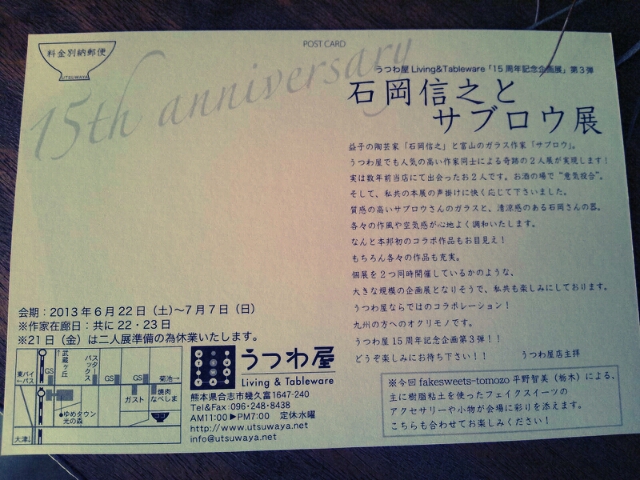 POST CARD
料金別納郵便
UTSUWAYA
15th anniversary
うつわ屋 Living&Tableware「15周年記念企画展」第3弾
石岡信之と
サブロウ展
益子の陶芸家「石岡信之」と富山のガラス作家「サブロウ」。
うつわ屋でも人気の高い作家同士による奇跡の2人展が実現します!
実は数年前当店にて出会ったお2人です。お酒の場で“意気投合”。
そして、私共の本展の声掛けに快く応じて下さいました。
質感の高いサブロウさんのガラスと、清涼感のある石岡さんの器。
各々の作風や空気感が心地よく調和いたします。
なんと本邦初のコラボ作品もお目見え!
もちろん各々の作品も充実。
個展を2つ同時開催しているかのような、
大きな規模の企画展となりそうで、私共も楽しみにしております。
うつわ屋ならではのコラボレーション!
九州の方へのオクリモノです。
うつわ屋15周年記念企画第3弾!!
どうぞ楽しみにお待ち下さい!! うつわ屋店主拝
※今回 fakesweets-tomozo 平野智美(栃木)による、
主に樹脂粘土を使ったフェイクスイーツの
アクセサリーや小物が会場に彩りを添えます。
こちらも合わせてお楽しみください!
会期:2013年6月22日(土)~7月7日(日)
※作家在廊日:共に22・23日
※21日(金)は二人展準備の為休業いたします。
東バイパス
GS
武蔵ヶ丘
バスターミナル
GS
GS
菊池→
ガスト
焼肉なべしま
ゆめタウン光の森
大津↓
うつわ屋
Living & Tableware
熊本県合志市幾久富1647-240
Tel&Fax:096-248-8438
AM11:00▶PM7:00 定休水曜
http://www.utsuwaya.net
info@utsuwaya.net